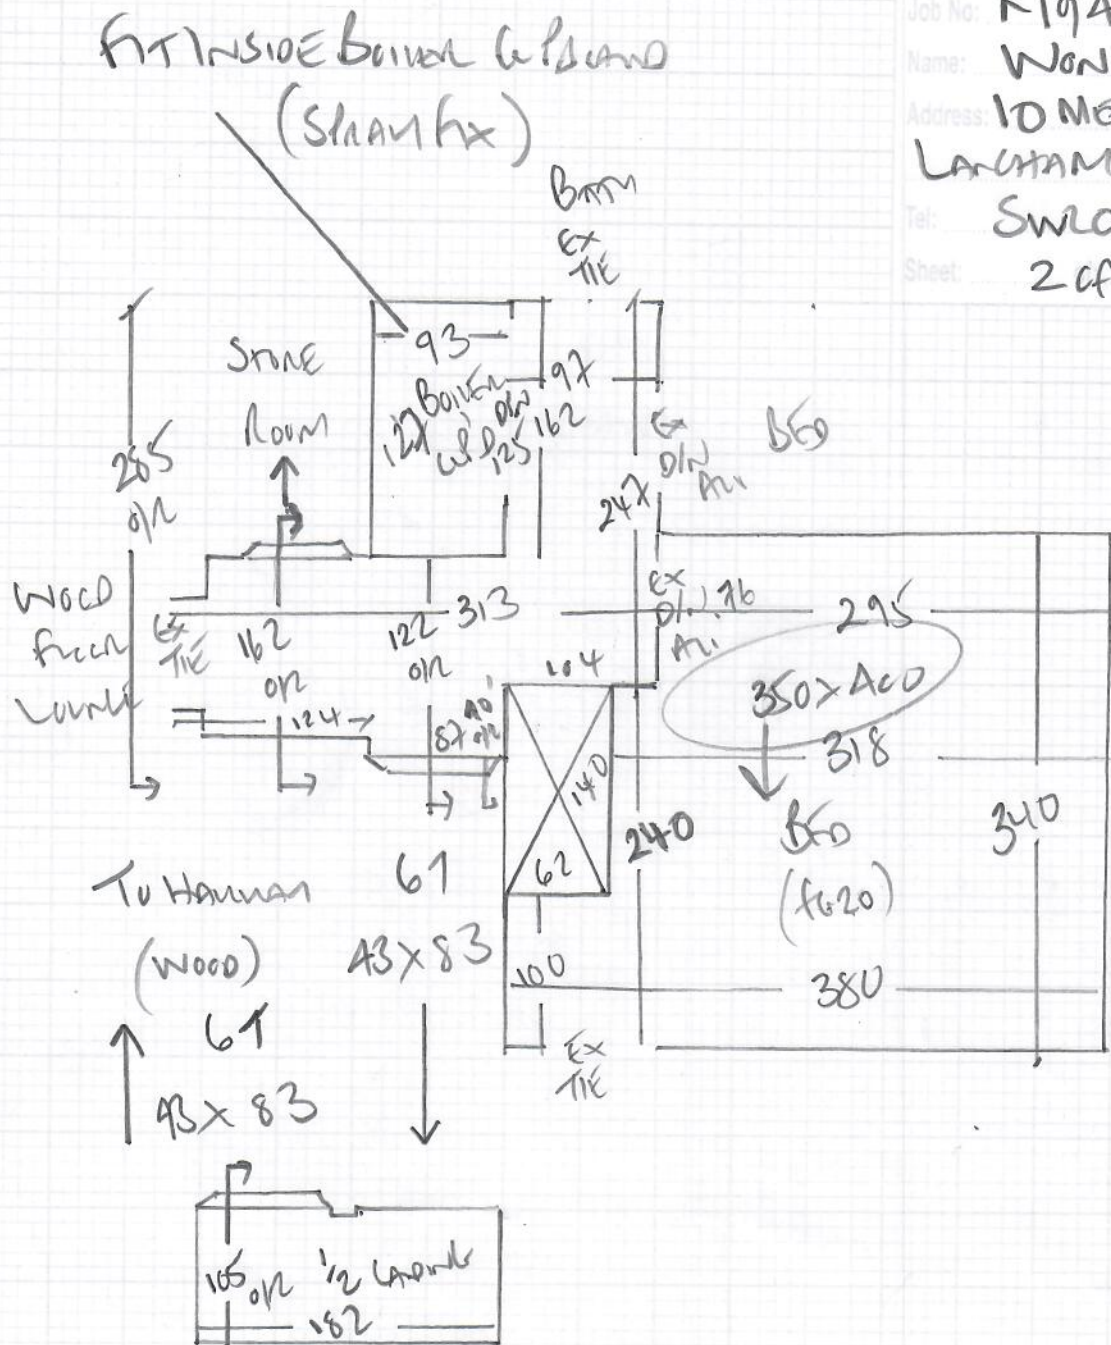 Job No: R194
Name: WON
Address: 10 ME
LANGHAM
Tel: SW20
Sheet: 2 of
FIT INSIDE BOILER CUPBOARD
(SPRAY FIX)
BATH
EX
TIE
STORE
ROOM
93
BOILER
127
125
162
97
285
O/R
EX
D/N
ALI
BED
247
WOOD
FLOOR
LOUNGE
EX
TIE
162
O/R
122
O/R
313
EX
D/N
ALI
76
295
104
350 x 400
124
87
40
O/R
140
62
318
240
BED
(FG20)
340
TO HALLWAY
(WOOD)
6T
43 x 83
6T
43 x 83
100
380
EX
TIE
105 O/R
1/2 LANDING
182